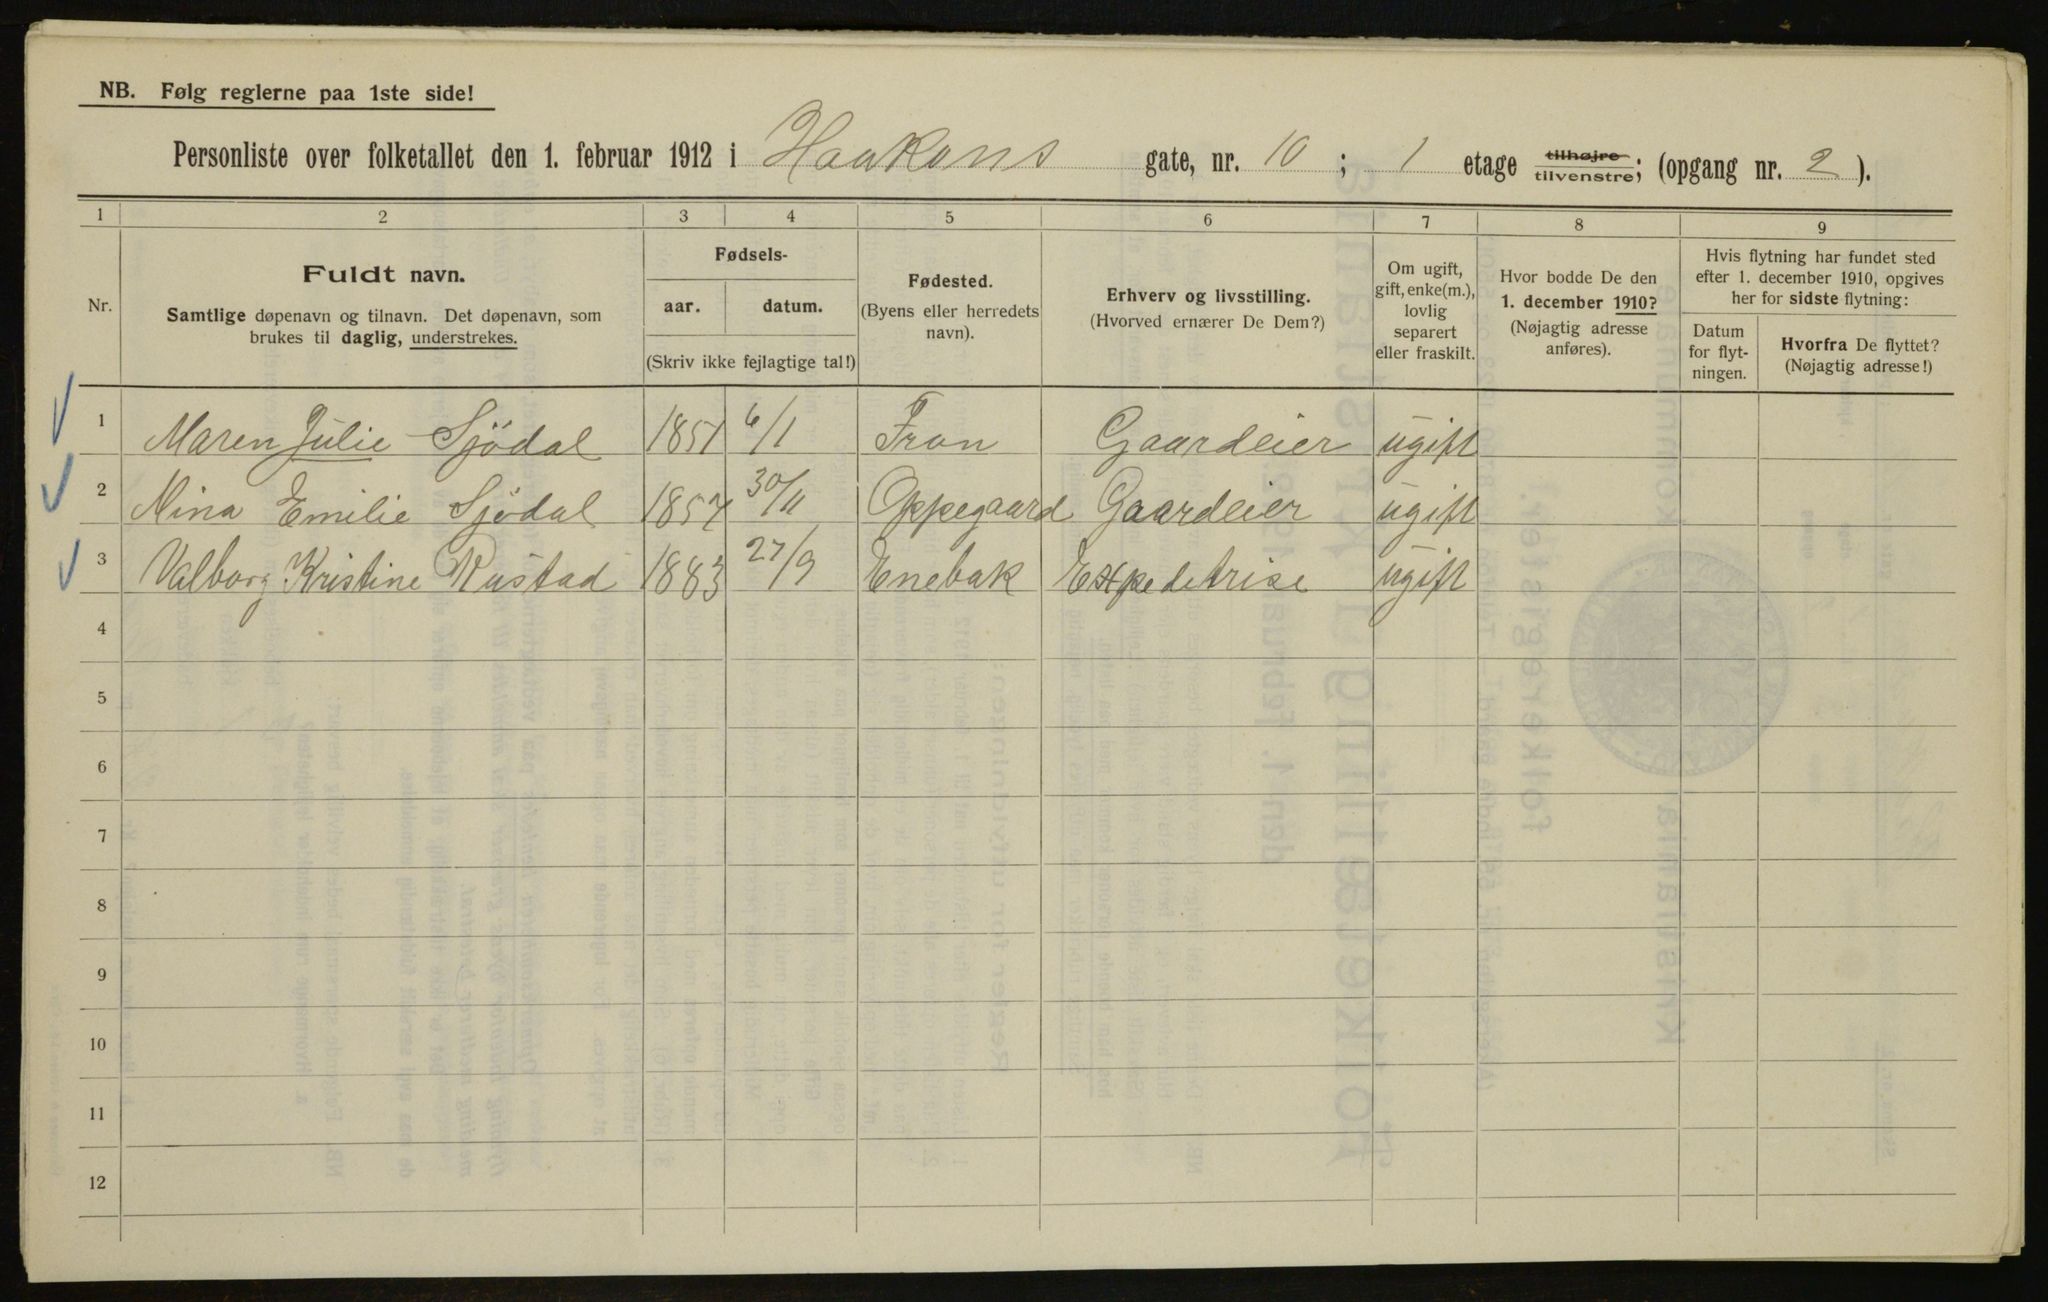 NB. Følg reglerne paa 1ste side!
Personliste over folketallet den 1. februar 1912 i Haakons gate, nr. 10 ; 1 etage tilhøjre tilvenstre; (opgang nr. 2 ).
1 2 3 4 5 6 7 8 9
Nr.
Fuldt navn.
Samtlige døpenavn og tilnavn. Det døpenavn, som
brukes til daglig, understrekes.
Fødsels-
aar. datum.
(Skriv ikke fejlagtige tal!)
Fødested.
(Byens eller herredets
navn).
Erhverv og livsstilling.
(Hvorved ernærer De Dem?)
Om ugift,
gift, enke(m.),
lovlig
separert
eller fraskilt.
Hvor bodde De den
1. december 1910?
(Nøjagtig adresse
anføres).
Hvis flytning har fundet sted
efter 1. december 1910, opgives
her for sidste flytning:
Datum
for flyt-
ningen.
Hvorfra De flyttet?
(Nøjagtig adresse!)
1 Maren Julie Sjödal 1851 6/1 Fron Gaardeier ugift
2 Mina Emilie Sjödal 1857 30/11 Oppegaard Gaardeier ugift
3 Valborg Kristine Rustad 1883 27/9 Enebak Expeditrise ugift
4
5
6
7
8
9
10
11
12